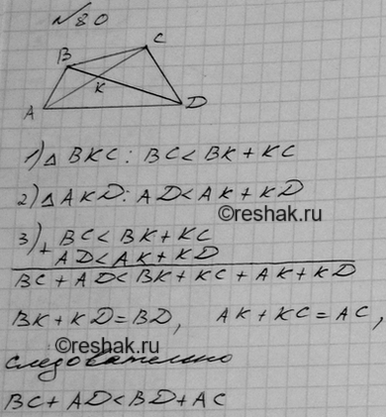 №80
B
C
K
A
D
1) △ BKC : BC < BK + KC
2) △ AKD : AD < AK + KD
©reshak.ru
3) + BC < BK + KC
AD < AK + KD
BC + AD < BK + KC + AK + KD
BK + KD = BD, AK + KC = AC,
©reshak.ru
следовательно
BC + AD < BD + AC